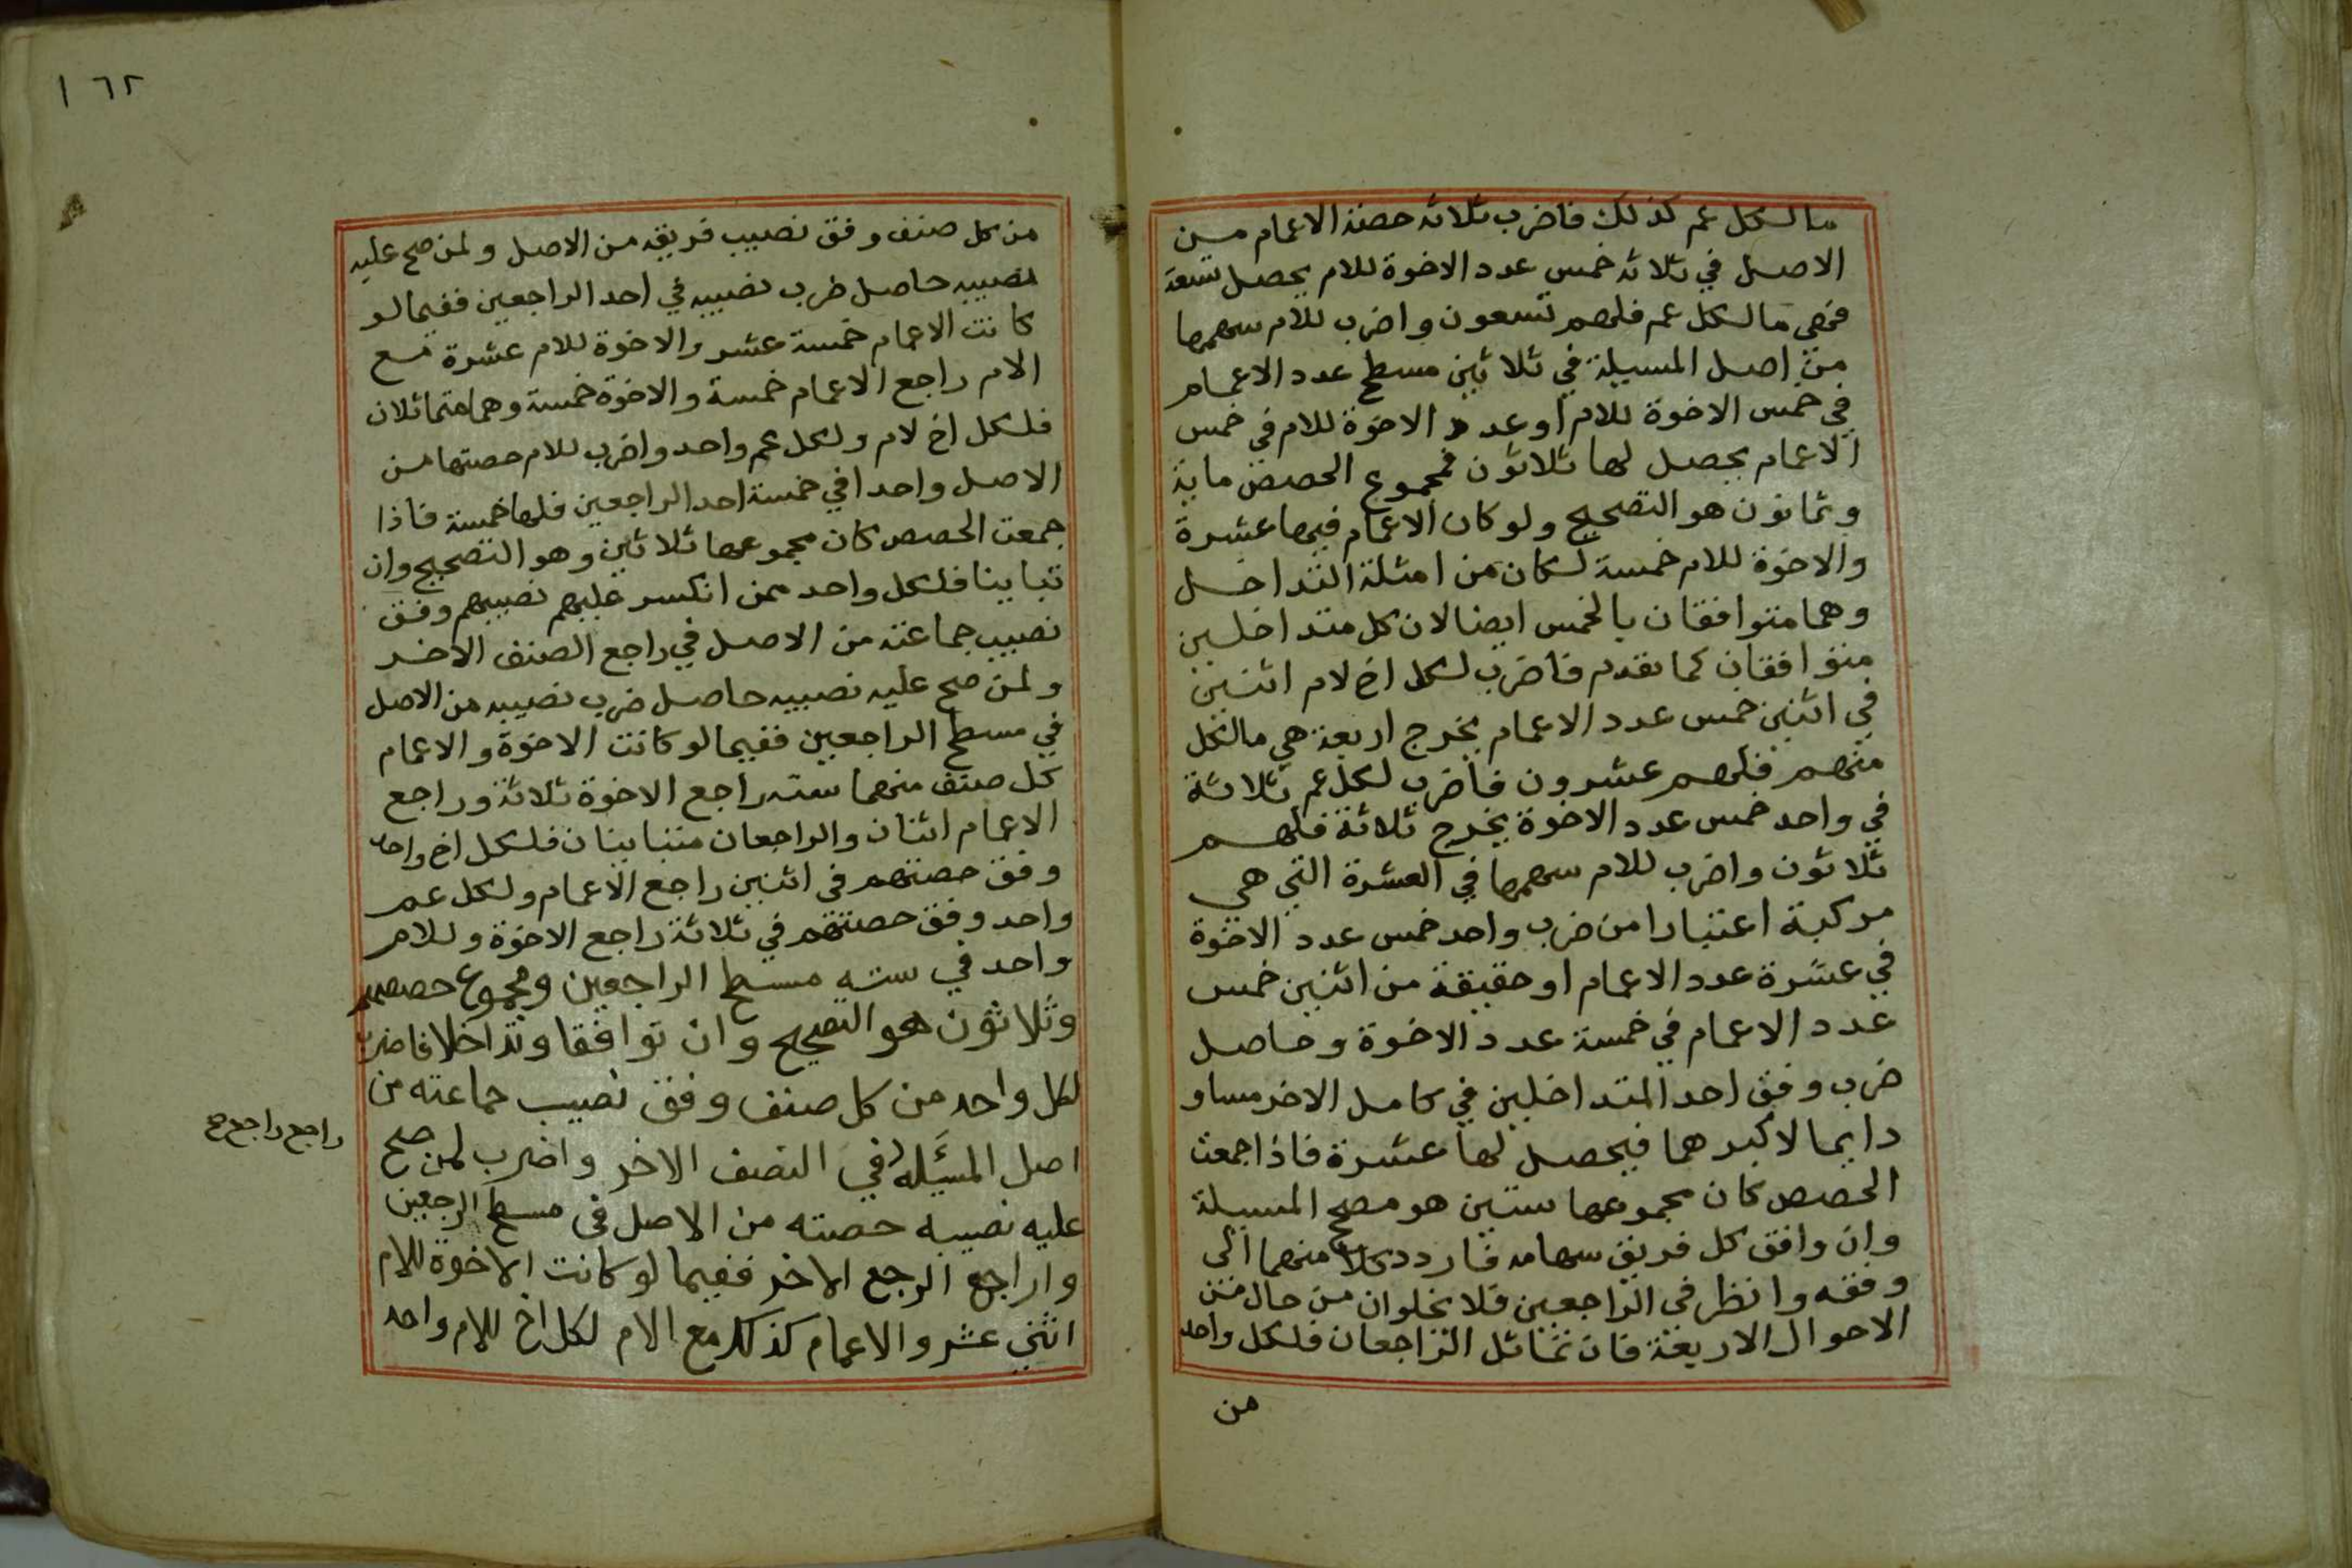 ما لكل عم كذلك فاضرب ثلاثه حصته الاعمام من
الاصل في ثلاثه خمس عدد الاخوة للام يحصل تسعة
فهي ما لكل عم فلهم تسعون واضرب للام سهمها
من اصل المسيلة في ثلاثين مسطح عدد الاعمام
في خمس الاخوة للام او عدد الاخوة للام في خمس
الاعمام يحصل لها ثلاثون فمجموع الحصص ماية
وثمانون هو التصحيح ولو كان الاعمام فيها عشرة
والاخوة للام خمسة لكان من امثلة التداخل
وهما متوافقان بالخمس ايضا لان كل متداخلين
متوافقان كما تقدم فاضرب لكل اخ لام اثنين
في اثنين خمس عدد الاعمام يخرج اربعة هي ما لكل
منهم فلهم عشرون فاضرب لكل عم ثلاثة
في واحد خمس عدد الاخوة يخرج ثلاثة فلهم
ثلاثون واضرب للام سهمها في العشرة التي هي
مركبة اعتبارا من ضرب واحد خمس عدد الاخوة
في عشرة عدد الاعمام او حقيقة من اثنين خمس
عدد الاعمام في خمسة عدد الاخوة وحاصل
ضرب وفق احد المتداخلين في كامل الاخر مساو
دايما لاكبرهما فيحصل لها عشرة فاذا جمعت
الحصص كان مجموعها ستين هو مصحح المسيلة
وان وافق كل فريق سهامه فاردد كلا منهما الى
وفقه وانظر في الراجعين فلا يخلوان من حال من
الاحوال الاربعة فان تماثل الراجعان فلكل واحد
من
١٦٢
من كل صنف وفق نصيب فريقه من الاصل ولمن صح عليه
نصيبه حاصل ضرب نصيبه في احد الراجعين ففيما لو
كانت الاعمام خمسة عشر والاخوة للام عشرة مع
الام راجع الاعمام خمسة والاخوة خمسة وهما متماثلان
فلكل اخ لام ولكل عم واحد واضرب للام حصتها من
الاصل واحدا في خمسة احد الراجعين فلها خمسة فاذا
جمعت الحصص كان مجموعها ثلاثين وهو التصحيح وان
تباينا فلكل واحد ممن انكسر عليهم نصيبهم وفق
نصيب جماعته من الاصل في راجع الصنف الاخر
ولمن صح عليه نصيبه حاصل ضرب نصيبه من الاصل
في مسطح الراجعين ففيما لو كانت الاخوة والاعمام
كل صنف منهما سته راجع الاخوة ثلاثة وراجع
الاعمام اثنان والراجعان متباينان فلكل اخ واحد
وفق حصتهم في اثنين راجع الاعمام ولكل عم
واحد وفق حصتهم في ثلاثة راجع الاخوة وللام
واحد في سته مسطح الراجعين ومجموع حصصهم
وثلاثون هو التصحيح وان توافقا وتداخلا فاضرب
لكل واحد من كل صنف وفق نصيب جماعته من
اصل المسئله في النصف الاخر واضرب لمن صح
راجع راجع صح
عليه نصيبه حصته من الاصل في مسطح الرجعين
وار اجع الرجع الاخر ففيما لو كانت الاخوة للام
اثني عشر والاعمام كذلك مع الام لكل اخ للام واحد